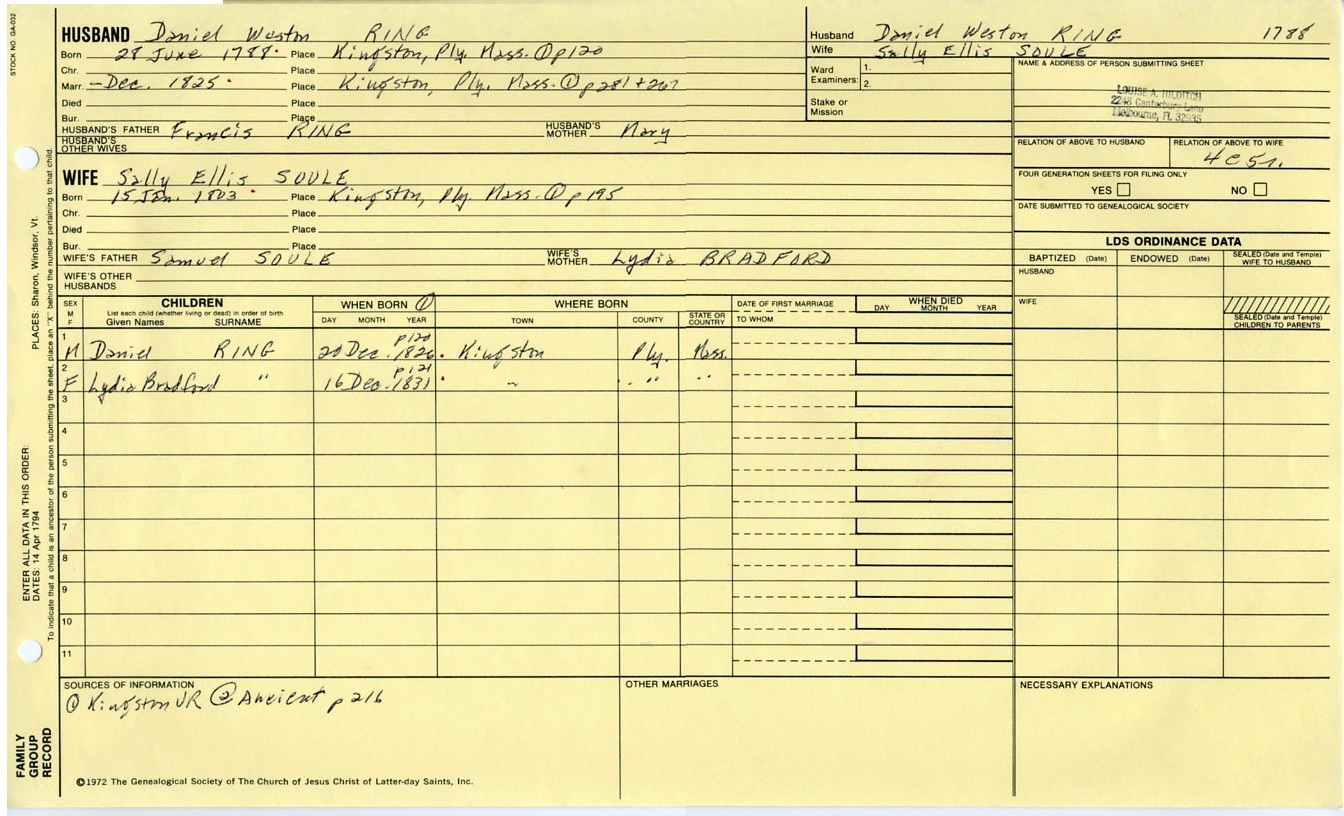 STOCK NO. GA-032
HUSBAND Daniel Weston RING
Born 28 June 1788 Place Kingston, Ply. Mass. ① p120
Chr. Place
Marr. – Dec. 1825 Place Kingston, Ply. Mass. ① p 281 + 267
Died Place
Bur. Place
HUSBAND'S FATHER Francis RING HUSBAND'S MOTHER Mary
HUSBAND'S OTHER WIVES
WIFE Sally Ellis SOULE
Born 15 Jan. 1803 Place Kingston, Ply. Mass. ① p195
Chr. Place
Died Place
Bur. Place
WIFE'S FATHER Samuel SOULE WIFE'S MOTHER Lydia BRADFORD
WIFE'S OTHER HUSBANDS
Husband Daniel Weston RING 1788
Wife Sally Ellis SOULE
Ward Examiners: 1.
2.
Stake or Mission
NAME & ADDRESS OF PERSON SUBMITTING SHEET
LOUISE A. HILDITCH
2248 Canterbury Lane
Melbourne, FL 32935
RELATION OF ABOVE TO HUSBAND RELATION OF ABOVE TO WIFE
4C5r.
FOUR GENERATION SHEETS FOR FILING ONLY
YES NO
DATE SUBMITTED TO GENEALOGICAL SOCIETY
LDS ORDINANCE DATA
BAPTIZED (Date) ENDOWED (Date) SEALED (Date and Temple) WIFE TO HUSBAND
HUSBAND
WIFE
SEALED (Date and Temple) CHILDREN TO PARENTS
SEX M F CHILDREN List each child (whether living or dead) in order of birth Given Names SURNAME
WHEN BORN ① DAY MONTH YEAR
WHERE BORN TOWN COUNTY STATE OR COUNTRY
DATE OF FIRST MARRIAGE TO WHOM
WHEN DIED DAY MONTH YEAR
1 p120
M Daniel RING 20 Dec. 1826. Kingston Ply. Mass.
2 p121
F Lydia Bradford " 16 Dec. 1831 ~ " "
3
4
5
6
7
8
9
10
11
SOURCES OF INFORMATION
① Kingston VR ② Ancient p 216
OTHER MARRIAGES
NECESSARY EXPLANATIONS
©1972 The Genealogical Society of The Church of Jesus Christ of Latter-day Saints, Inc.
FAMILY GROUP RECORD
ENTER ALL DATA IN THIS ORDER:
DATES: 14 Apr 1794 PLACES: Sharon, Windsor, Vt.
To indicate that a child is an ancestor of the person submitting the sheet, place an "X" behind the number pertaining to that child.